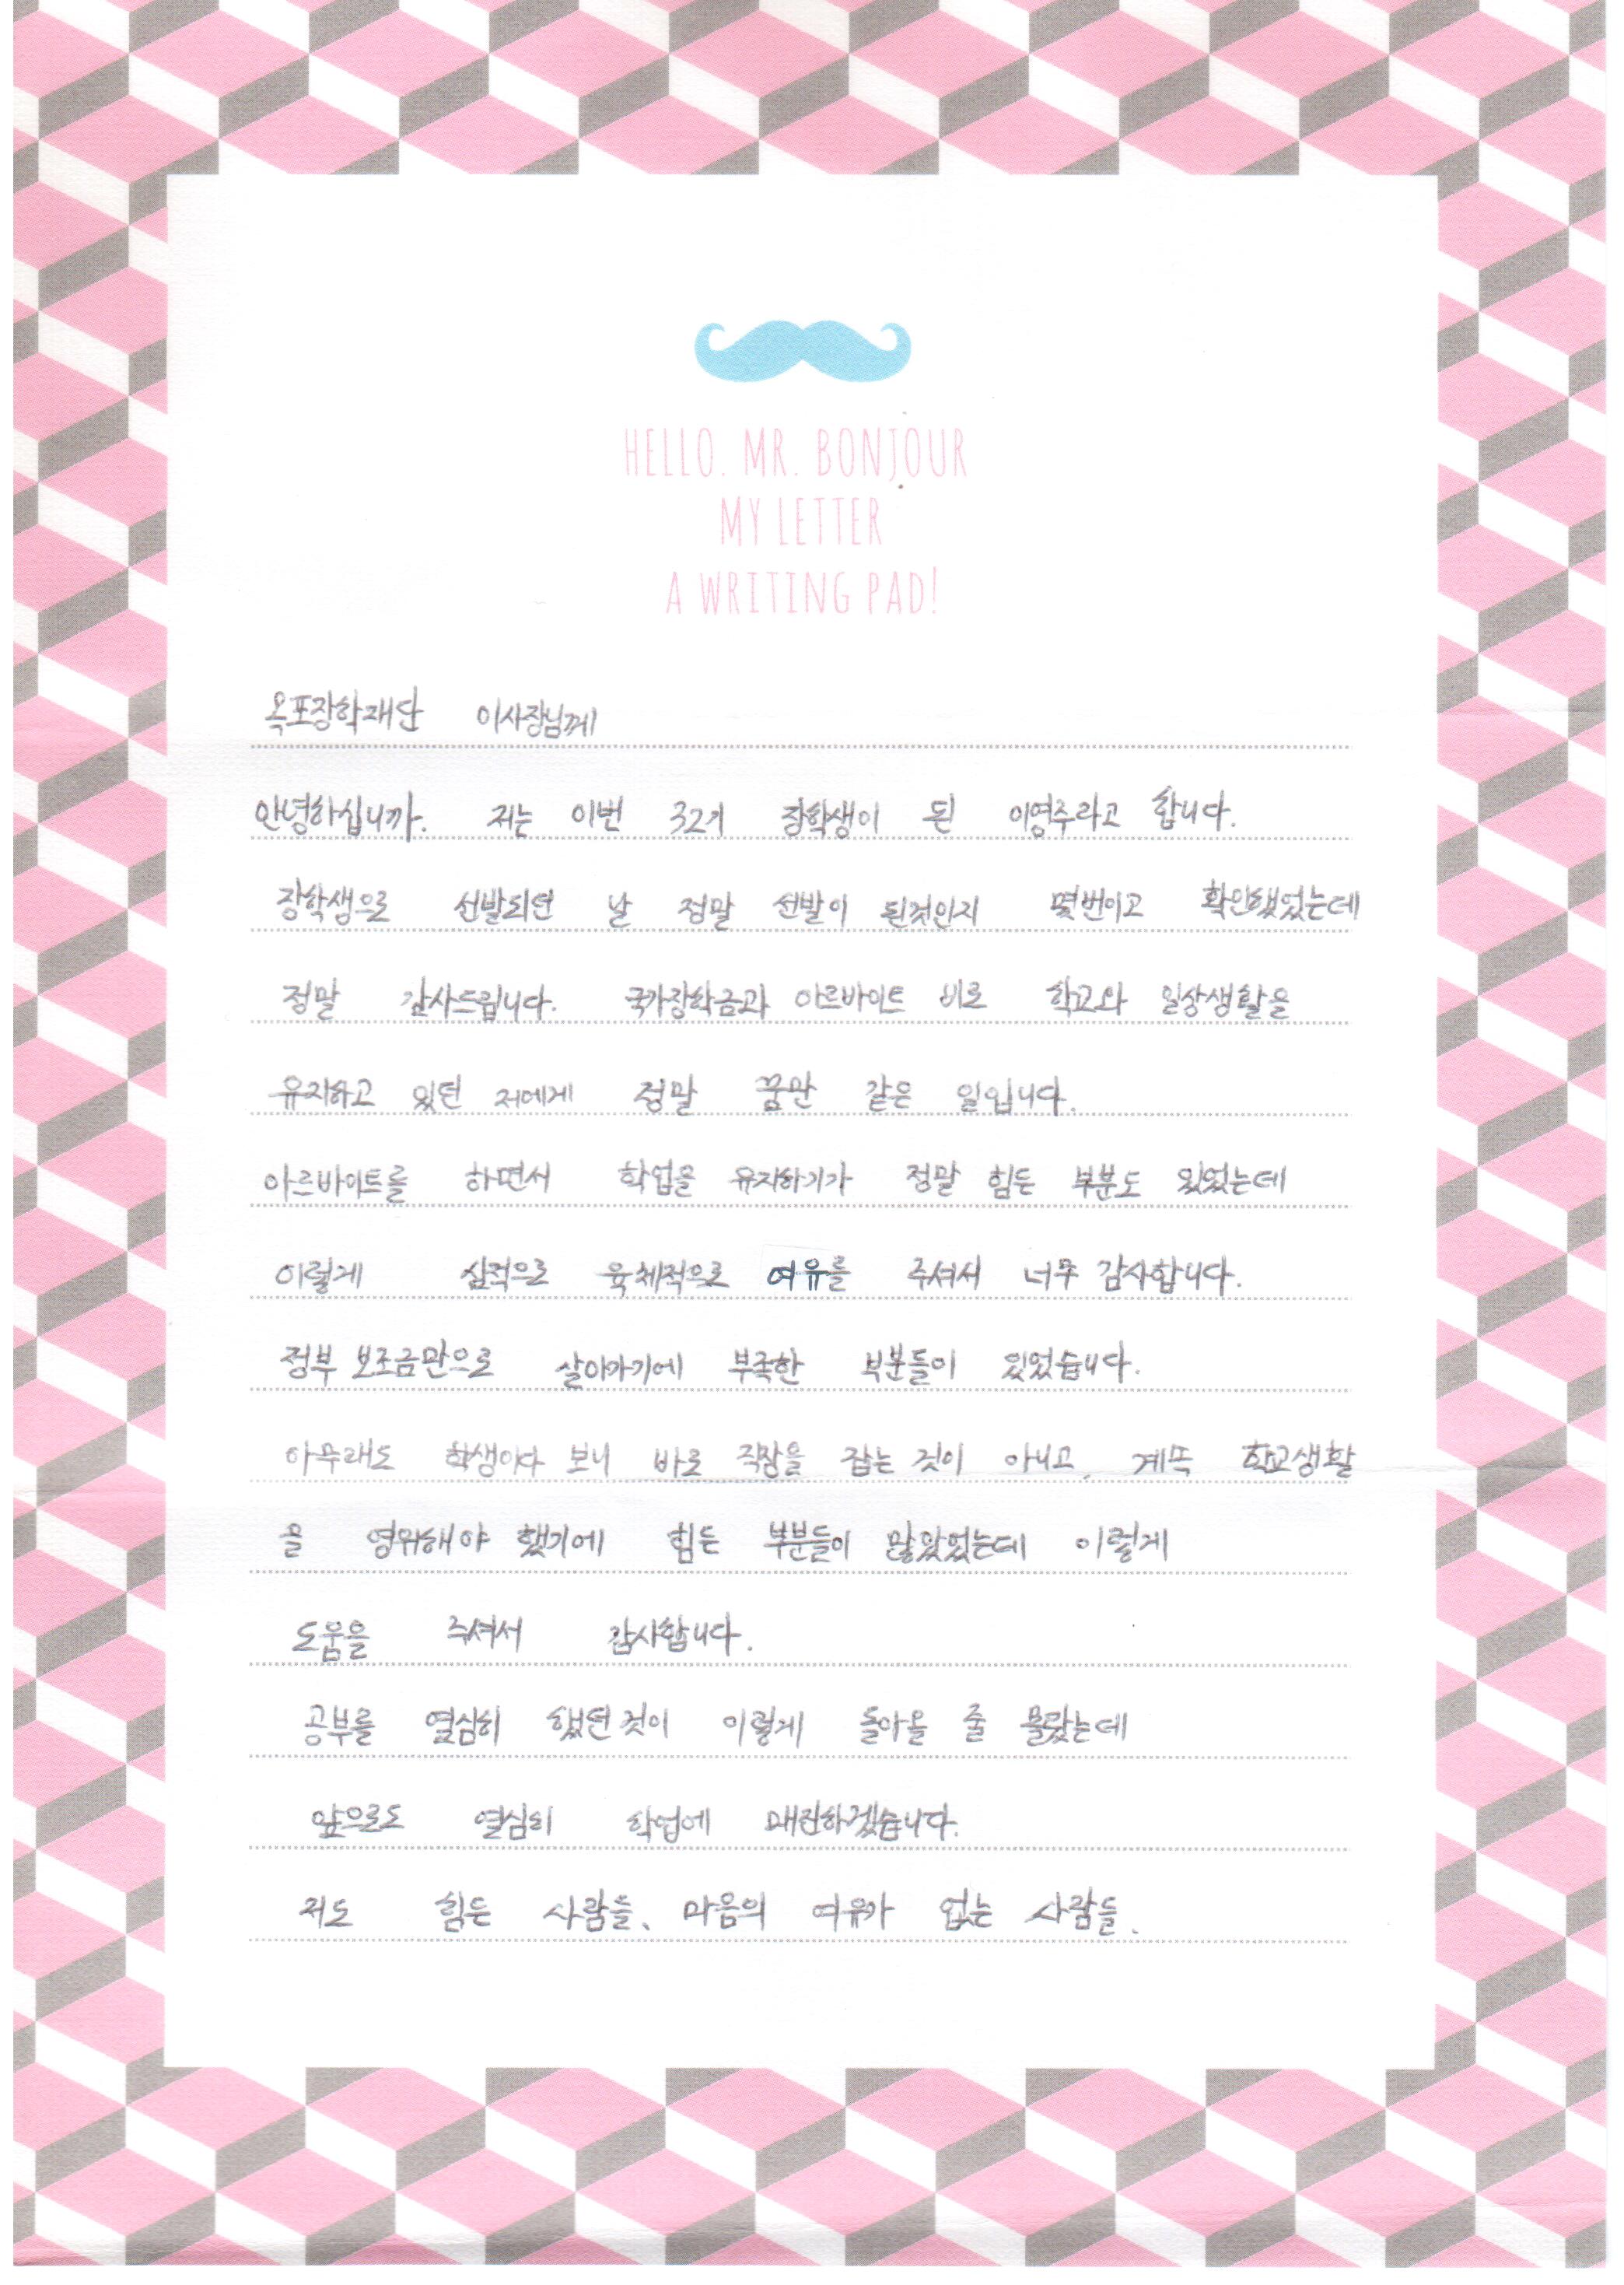 HELLO. MR. BONJOUR
MY LETTER
A WRITING PAD!
옥포장학재단 이사장님께
안녕하십니까. 저는 이번 32기 장학생이 된 이영주라고 합니다.
장학생으로 선발되던 날 정말 선발이 된것인지 몇번이고 확인했었는데
정말 감사드립니다. 국가장학금과 아르바이트 비로 학교와 일상생활을
유지하고 있던 저에게 정말 꿈만 같은 일입니다.
아르바이트를 하면서 학업을 유지하기가 정말 힘든 부분도 있었는데
이렇게 심적으로 육체적으로 여유를 주셔서 너무 감사합니다.
정부 보조금만으로 살아가기에 부족한 부분들이 있었습니다.
아무래도 학생이다 보니 바로 직장을 잡는 것이 아니고, 계속 학교생활
을 영위해야 했기에 힘든 부분들이 많았었는데 이렇게
도움을 주셔서 감사합니다.
공부를 열심히 했던 것이 이렇게 돌아올 줄 몰랐는데
앞으로도 열심히 학업에 매진하겠습니다.
저도 힘든 사람들, 마음의 여유가 없는 사람들,